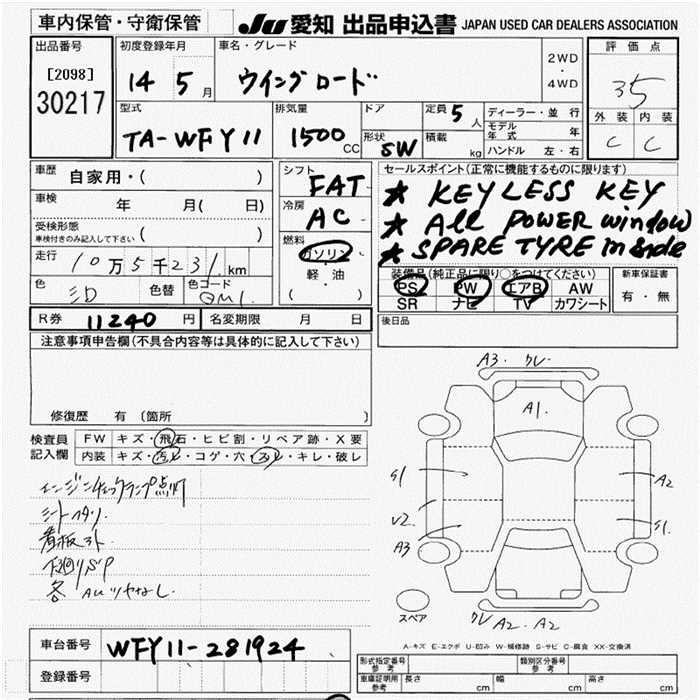 車内保管・守衛保管 JU愛知 出品申込書 JAPAN USED CAR DEALERS ASSOCIATION
出品番号 初度登録年月 車名・グレード 評価点
[2098] 14 5月 ウイングロード 2WD・4WD 35
30217
型式 排気量 ドア 定員 5人 ディーラー・並行 外装 内装
TA-WFY11 1500CC 形状 SW 積載 kg モデル年式 年 C C
ハンドル 左・右
車歴 自家用・( ) シフト FAT セールスポイント(正常に機能するものに限ります)
車検 年 月( 日) 冷房 AC ★ KEYLESS KEY
受検形態 ★ All POWER window
車検付きのみ記入して下さい ( ) 燃料 ガソリン ★ SPARE TYRE inside
走行 10万5千231km 軽・油 装備品(純正品に限り○をつけてください) 新車保証書
色 色替 色コード QM1 ( ・ ) PS PW エアB AW 有・無
SR ナビ TV カワシート
R券 11240円 名変期限 月 日 後日品
注意事項申告欄(不具合内容等は具体的に記入して下さい)
修復歴 有(箇所 )
検査員 FW キズ・飛石・ヒビ割・リペア跡・X要
記入欄 内装 キズ・汚レ・コゲ・穴・スレ・キレ・破レ
エンジンチェックランプ点灯
シートヘタリ
看板外ト
下廻りSP
各 AUツヤなし
A3・クレ
A1
S1 A2
U2
A3 S1
スペア クレ A2・A2
A-キズ E-エクボ U-凹み W-補修跡 S-サビ C-腐食 XX-交換済
車台番号 WFY11-281924
登録番号
形式指定番号 参考 類別区分番号 参考
車庫証明用 参考 長さ cm 幅 cm 高さ cm